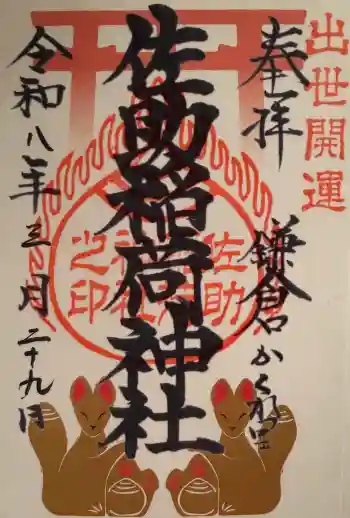 出世開運
奉拝
鎌倉かくれ里
佐助稲荷神社
佐助稲荷神社之印
令和八年三月二十九日